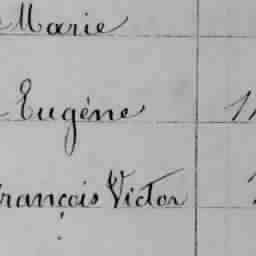 Marie
Eugène
François Victor